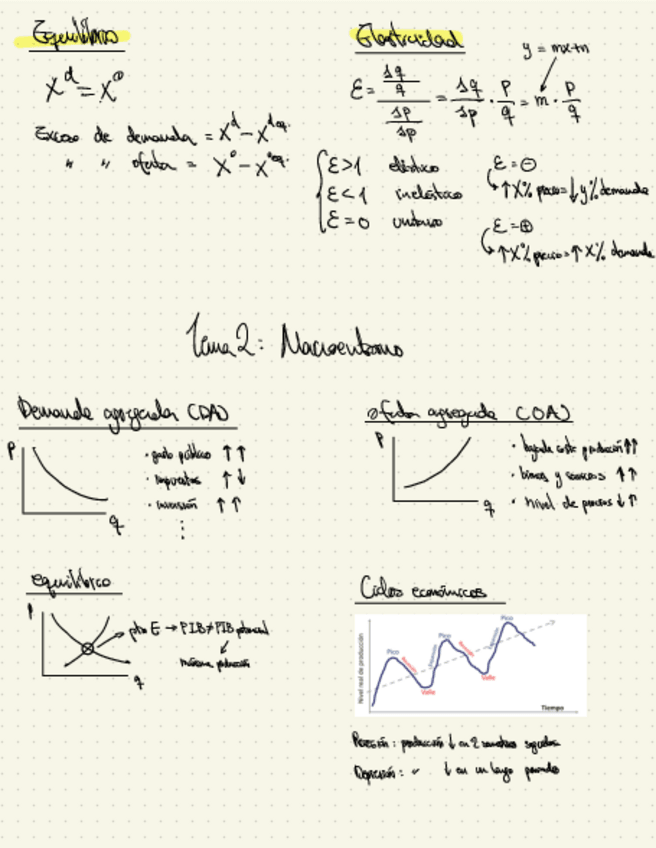 Equilibrio
X^d = X^o
Exceso de demanda = X^d - X^deq.
" " oferta = X^o - X^oeq.
Elasticidad
y = mx+n
ε = (Δq/q)/(Δp/Δp) = Δq/Δp · p/q = m · p/q
ε>1 elástico
ε<1 inelástico
ε=0 unitario
ε = ⊖
↑X% precio = ↓y% demanda
ε = ⊕
↑X% precio = ↑X% demanda
Tema 2: Macroentorno
Demanda agregada (DA)
P
q
· gasto público ↑↑
· impuestos ↑↓
· inversión ↑↑
Oferta agregada (OA)
P
q
· bajada coste producción ↑↑
· bienes y servicios ↑↑
· nivel de precios ↓↑
equilibrio
P
q
pto E → PIB ≠ PIB potencial
máxima producción
Ciclos económicos
Nivel real de producción
Pico
Valle
Pico
Valle
Pico
Tiempo
Recesión: producción ↓ en 2 trimestres seguidos
Depresión: " ↓ en un largo periodo